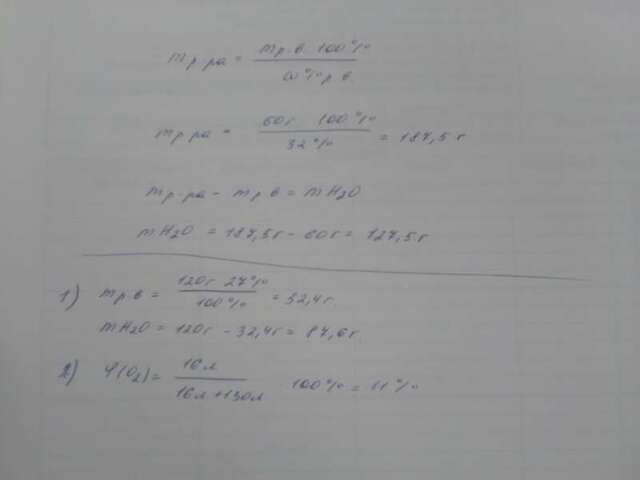 m р-ра = m р.в. · 100% / ω% р.в.
m р-ра = 60г · 100% / 32% = 187,5 г
m р-ра - m р.в = mH2O
mH2O = 187,5г - 60г = 127,5г
1) m р.в = 120г · 27% / 100% = 32,4г.
mH2O = 120г - 32,4г = 87,6г.
2) φ(O2) = 16л / 16л + 130л · 100% = 11%